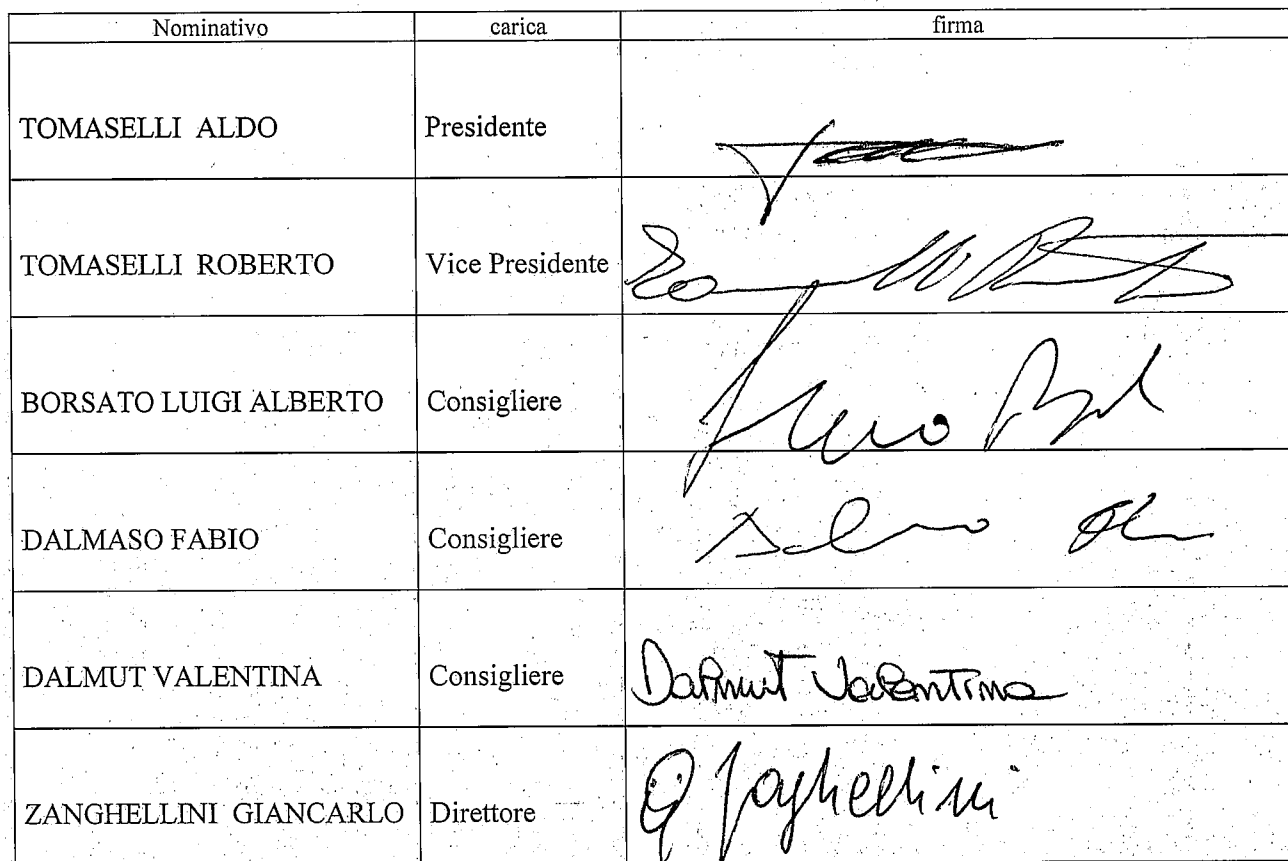 Nominativo carica firma
TOMASELLI ALDO Presidente
TOMASELLI ROBERTO Vice Presidente
BORSATO LUIGI ALBERTO Consigliere
DALMASO FABIO Consigliere
DALMUT VALENTINA Consigliere Dalmut Valentina
ZANGHELLINI GIANCARLO Direttore G Zanghellini